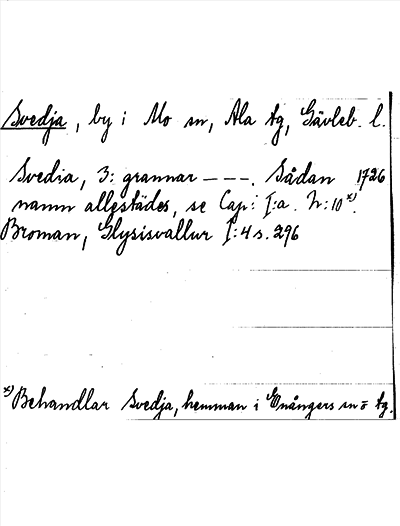 Svedja, by i Mo sn, Ala tg, Gävleb. l.
Svedia, 3: grannar ---. Sådan 1726
namn allestädes, se Cap: I:a. N:10 x).
Broman, Glysisvallur I:4 s. 296
x) Behandlar Svedja, hemman i Enångers sn o tg.